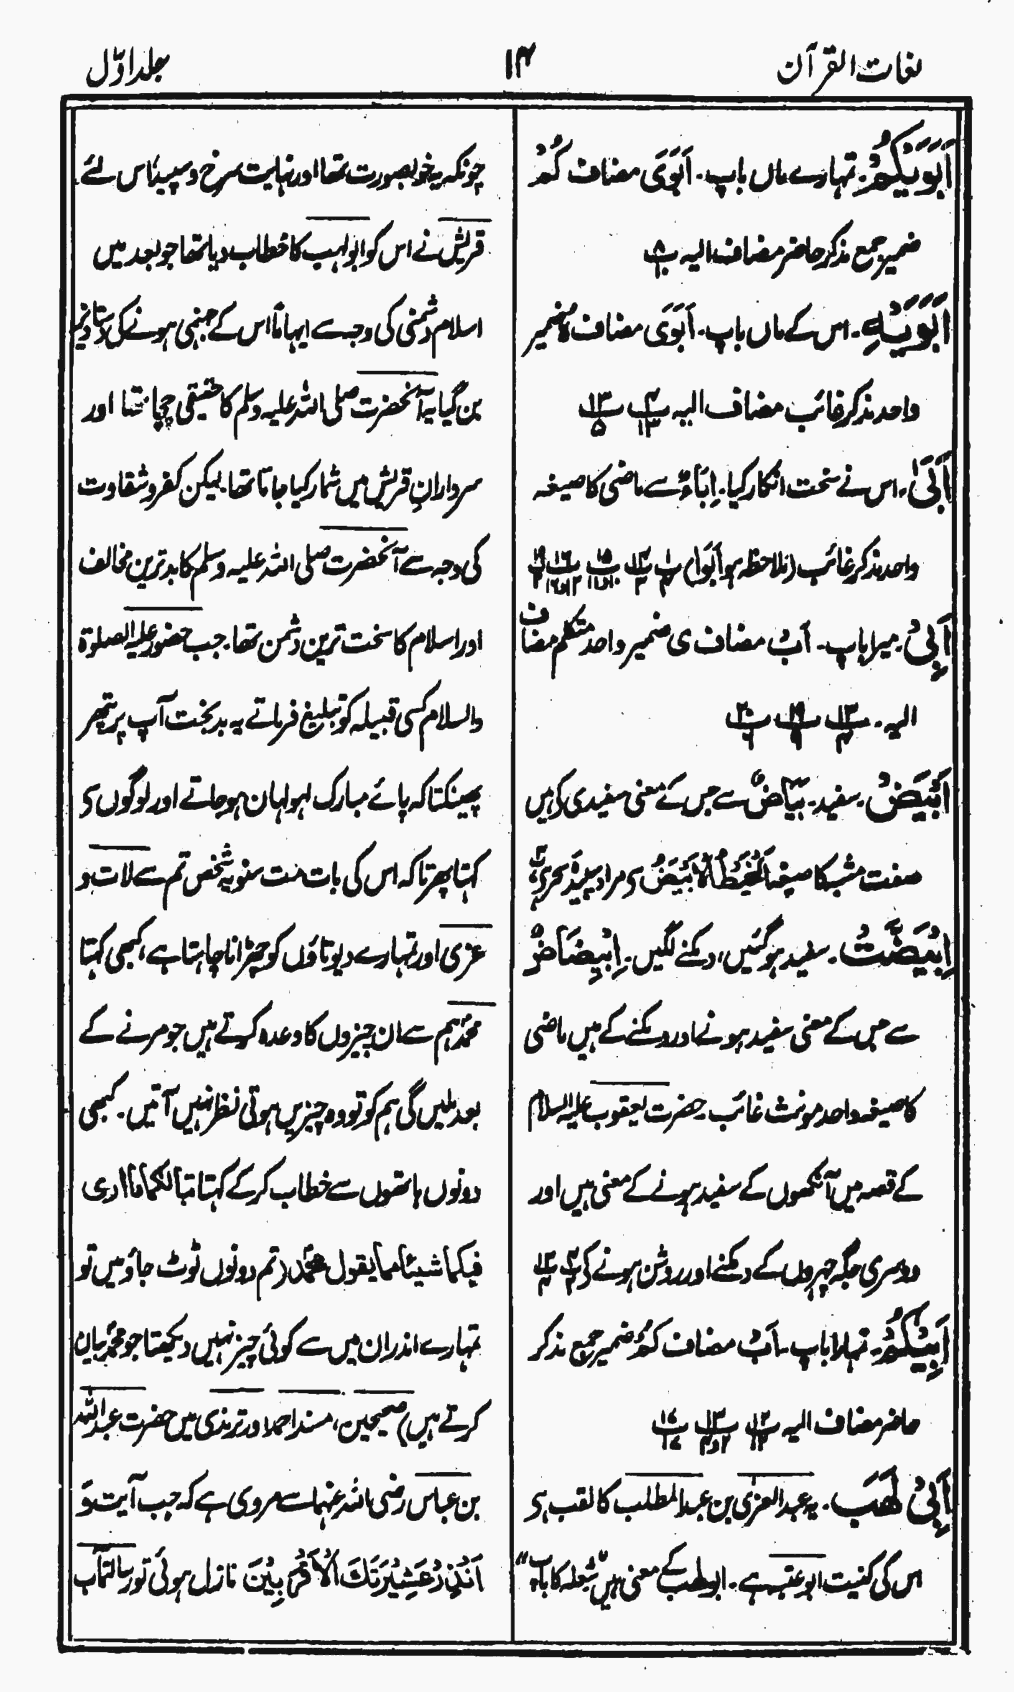 لغات القرآن
۱۴
جلد اوّل
اَبَوَيْكُمْ۔ تمہارے ماں باپ۔ اَبَوَی مضاف كُمْ
ضمیر جمع مذکر حاضر مضاف الیہ
اَبَوَيْهِ۔ اس کے ماں باپ۔ اَبَوَی مضاف ہٗ ضمیر
واحد مذکر غائب مضاف الیہ
اَبٰی۔ اس نے سخت انکار کیا۔ اِبَاءٌ سے ماضی کا صیغہ
واحد مذکر غائب (ملاحظہ ہو اَبَوْا)
اَبِیْ۔ میرا باپ۔ اَبْ مضاف ی ضمیر واحد متکلم مضاف
الیہ۔
اَبْيَضُ۔ سفید۔ بَيَاضٌ سے جس کے معنی سفیدی کے ہیں
صفت مشبہ کا صیغہ اَلْخَيْطُ الْاَبْيَضُ سے مراد سپیدۂ سحر ہے
اِبْيَضَّتْ۔ سفید ہو گئیں، دمکنے لگیں۔ اِبْيِضَاضٌ
سے جس کے معنی سفید ہونے اور دمکنے کے ہیں ماضی
کا صیغہ واحد مونث غائب۔ حضرت یعقوب علیہ السلام
کے قصہ میں آنکھوں کے سفید ہونے کے معنی ہیں اور
دوسری جگہ چہروں کے دمکنے اور روشن ہونے کے
اَبِيْكُمْ۔ تمہارا باپ۔ اَبْ مضاف كُمْ ضمیر جمع مذکر
حاضر مضاف الیہ
اَبِیْ لَهَب۔ یہ عبدالعزٰی بن عبدالمطلب کا لقب ہی
اس کی کنیت ابو عتبہ ہے۔ ابو لھب کے معنی ہیں "شعلہ کا باپ"
چونکہ یہ خوبصورت تھا اور نہایت سرخ و سپید، اس لئے
قریش نے اس کو ابو لہب کا خطاب دیا تھا جو بعد میں
اسلام دشمنی کی وجہ سے ایہاماً اس کے جہنمی ہونے کی دستاویز
بن گیا یہ آنحضرت صلی اللہ علیہ وسلم کا حقیقی چچا تھا اور
سردارانِ قریش میں شمار کیا جاتا تھا۔ لیکن کفر و شقاوت
کی وجہ سے آنحضرت صلی اللہ علیہ وسلم کا بدترین مخالف
اور اسلام کا سخت ترین دشمن تھا۔ جب حضور علیہ الصلوۃ
والسلام کسی قبیلہ کو تبلیغ فرماتے یہ بدبخت آپ پر پتھر
پھینکتا کہ پائے مبارک لہولہان ہو جاتے اور لوگوں سے
کہتا پھرتا کہ اس کی بات مت سنو یہ شخص تم سے لات و
عزی اور تمہارے دیوتاؤں کو چھڑانا چاہتا ہے، کبھی کہتا
محمدؐ ہم سے ان چیزوں کا وعدہ کرتے ہیں جو مرنے کے
بعد ملیں گی ہم کو تو وہ چیزیں ہوتی نظر نہیں آتیں۔ کبھی
دونوں ہاتھوں سے خطاب کر کے کہتا تبا لکما ما ادری
فیکما شیئا مما یقول محمد (تم دونوں ٹوٹ جاؤ میں تو
تمہارے اندر ان میں سے کوئی چیز نہیں دیکھتا جو محمدؐ بیان
کرتے ہیں) صحیحین، مسند احمد اور ترمذی میں حضرت عبد اللہ
بن عباس رضی اللہ عنہما سے مروی ہے کہ جب آیت وَ
اَنْذِرْ عَشِيْرَتَكَ الْاَقْرَبِيْنَ نازل ہوئی تو رسالتمآب